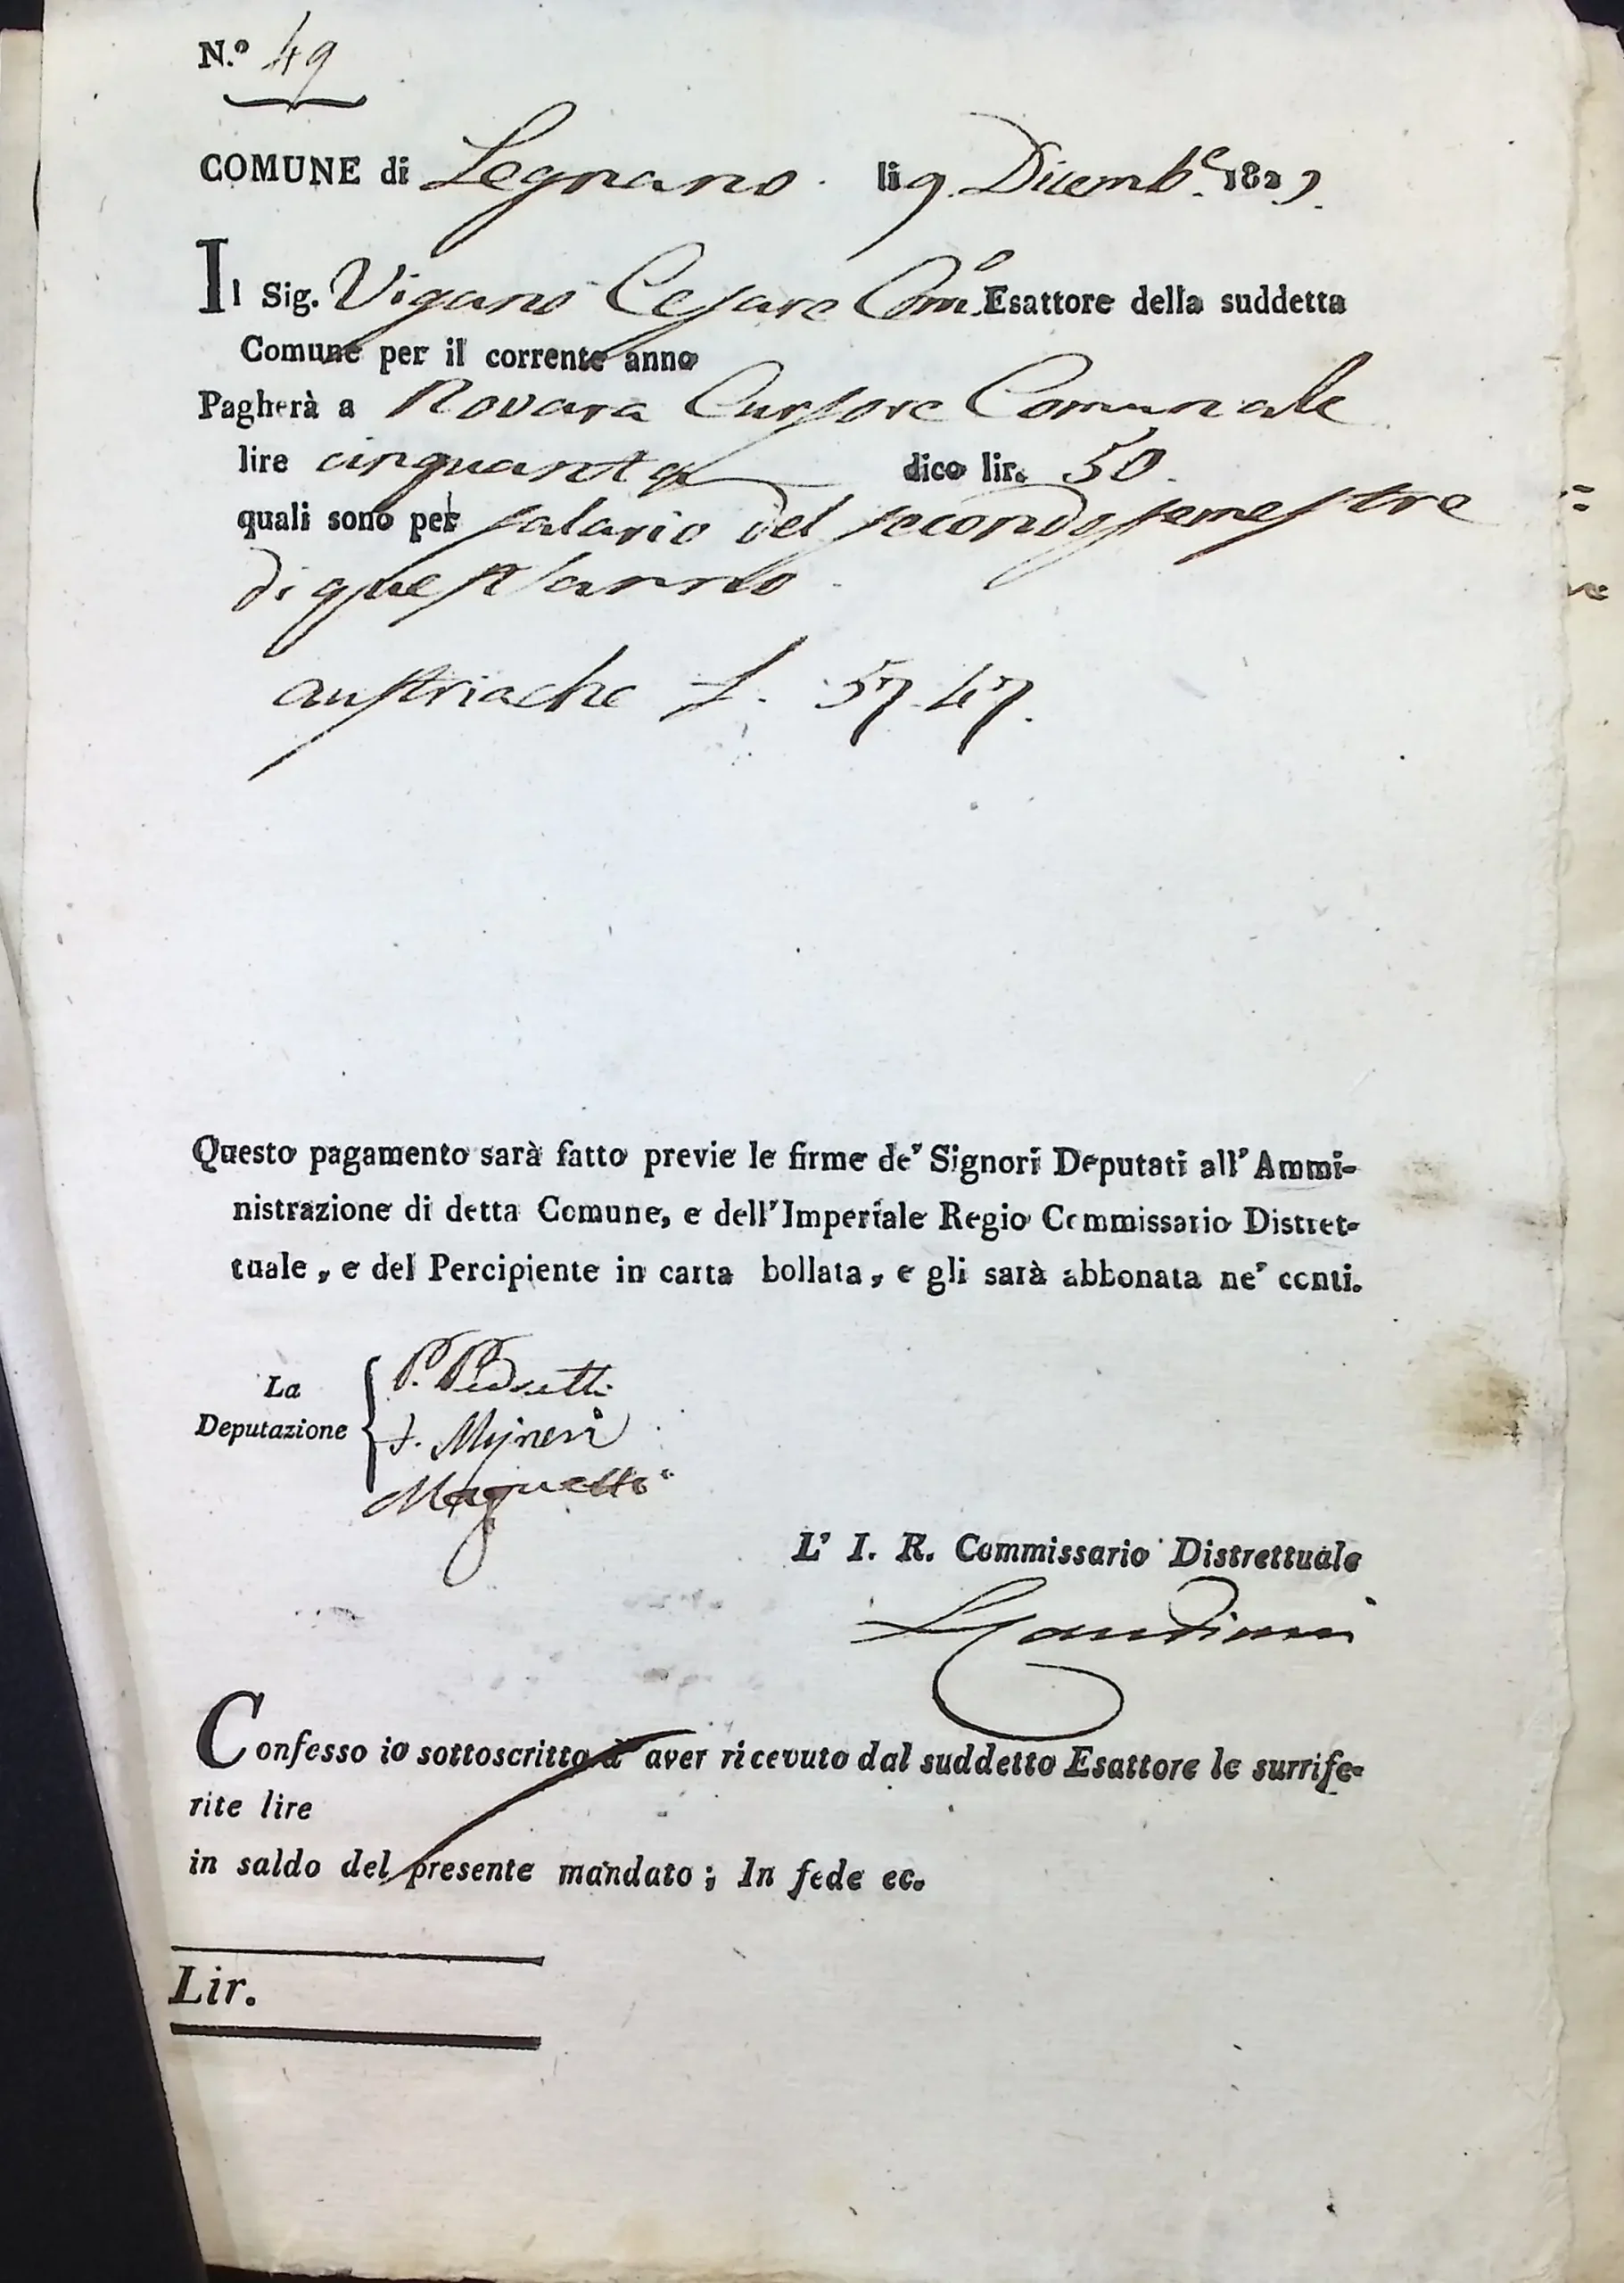 N.º 49
COMUNE di Legnano. li 9. Dicemb.e 182
Il Sig. Vigano Cesare Com.o Esattore della suddetta
Comune per il corrente anno
Pagherà a Novara Cursore Comunale
lire cinquanta dico lir. 50.
quali sono per salario del secondo semestre
di quest'anno
austriache £. 57.47.
Questo pagamento sarà fatto previe le firme de' Signori Deputati all' Ammi-
nistrazione di detta Comune, e dell' Imperiale Regio Commissario Distret-
tuale, e del Percipiente in carta bollata, e gli sarà abbonata ne' conti.
La
Deputazione
P.
Magnetti
L' I. R. Commissario Distrettuale
Confesso io sottoscritto d' aver ricevuto dal suddetto Esattore le surrife-
rite lire
in saldo del presente mandato; In fede ec.
Lir.